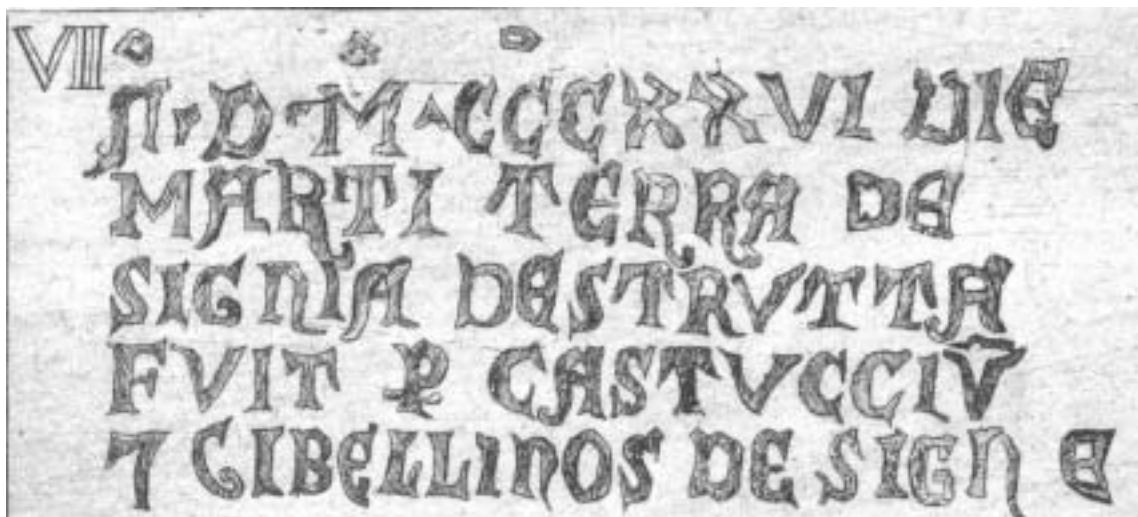 VII
N · D · M · CCCXXVI DIE
MARTI TERRA DE
SIGNIA DESTRVTTA
FVIT ꝑ CASTVCCIV̄
⁊ GIBELLINOS DE SIGNE